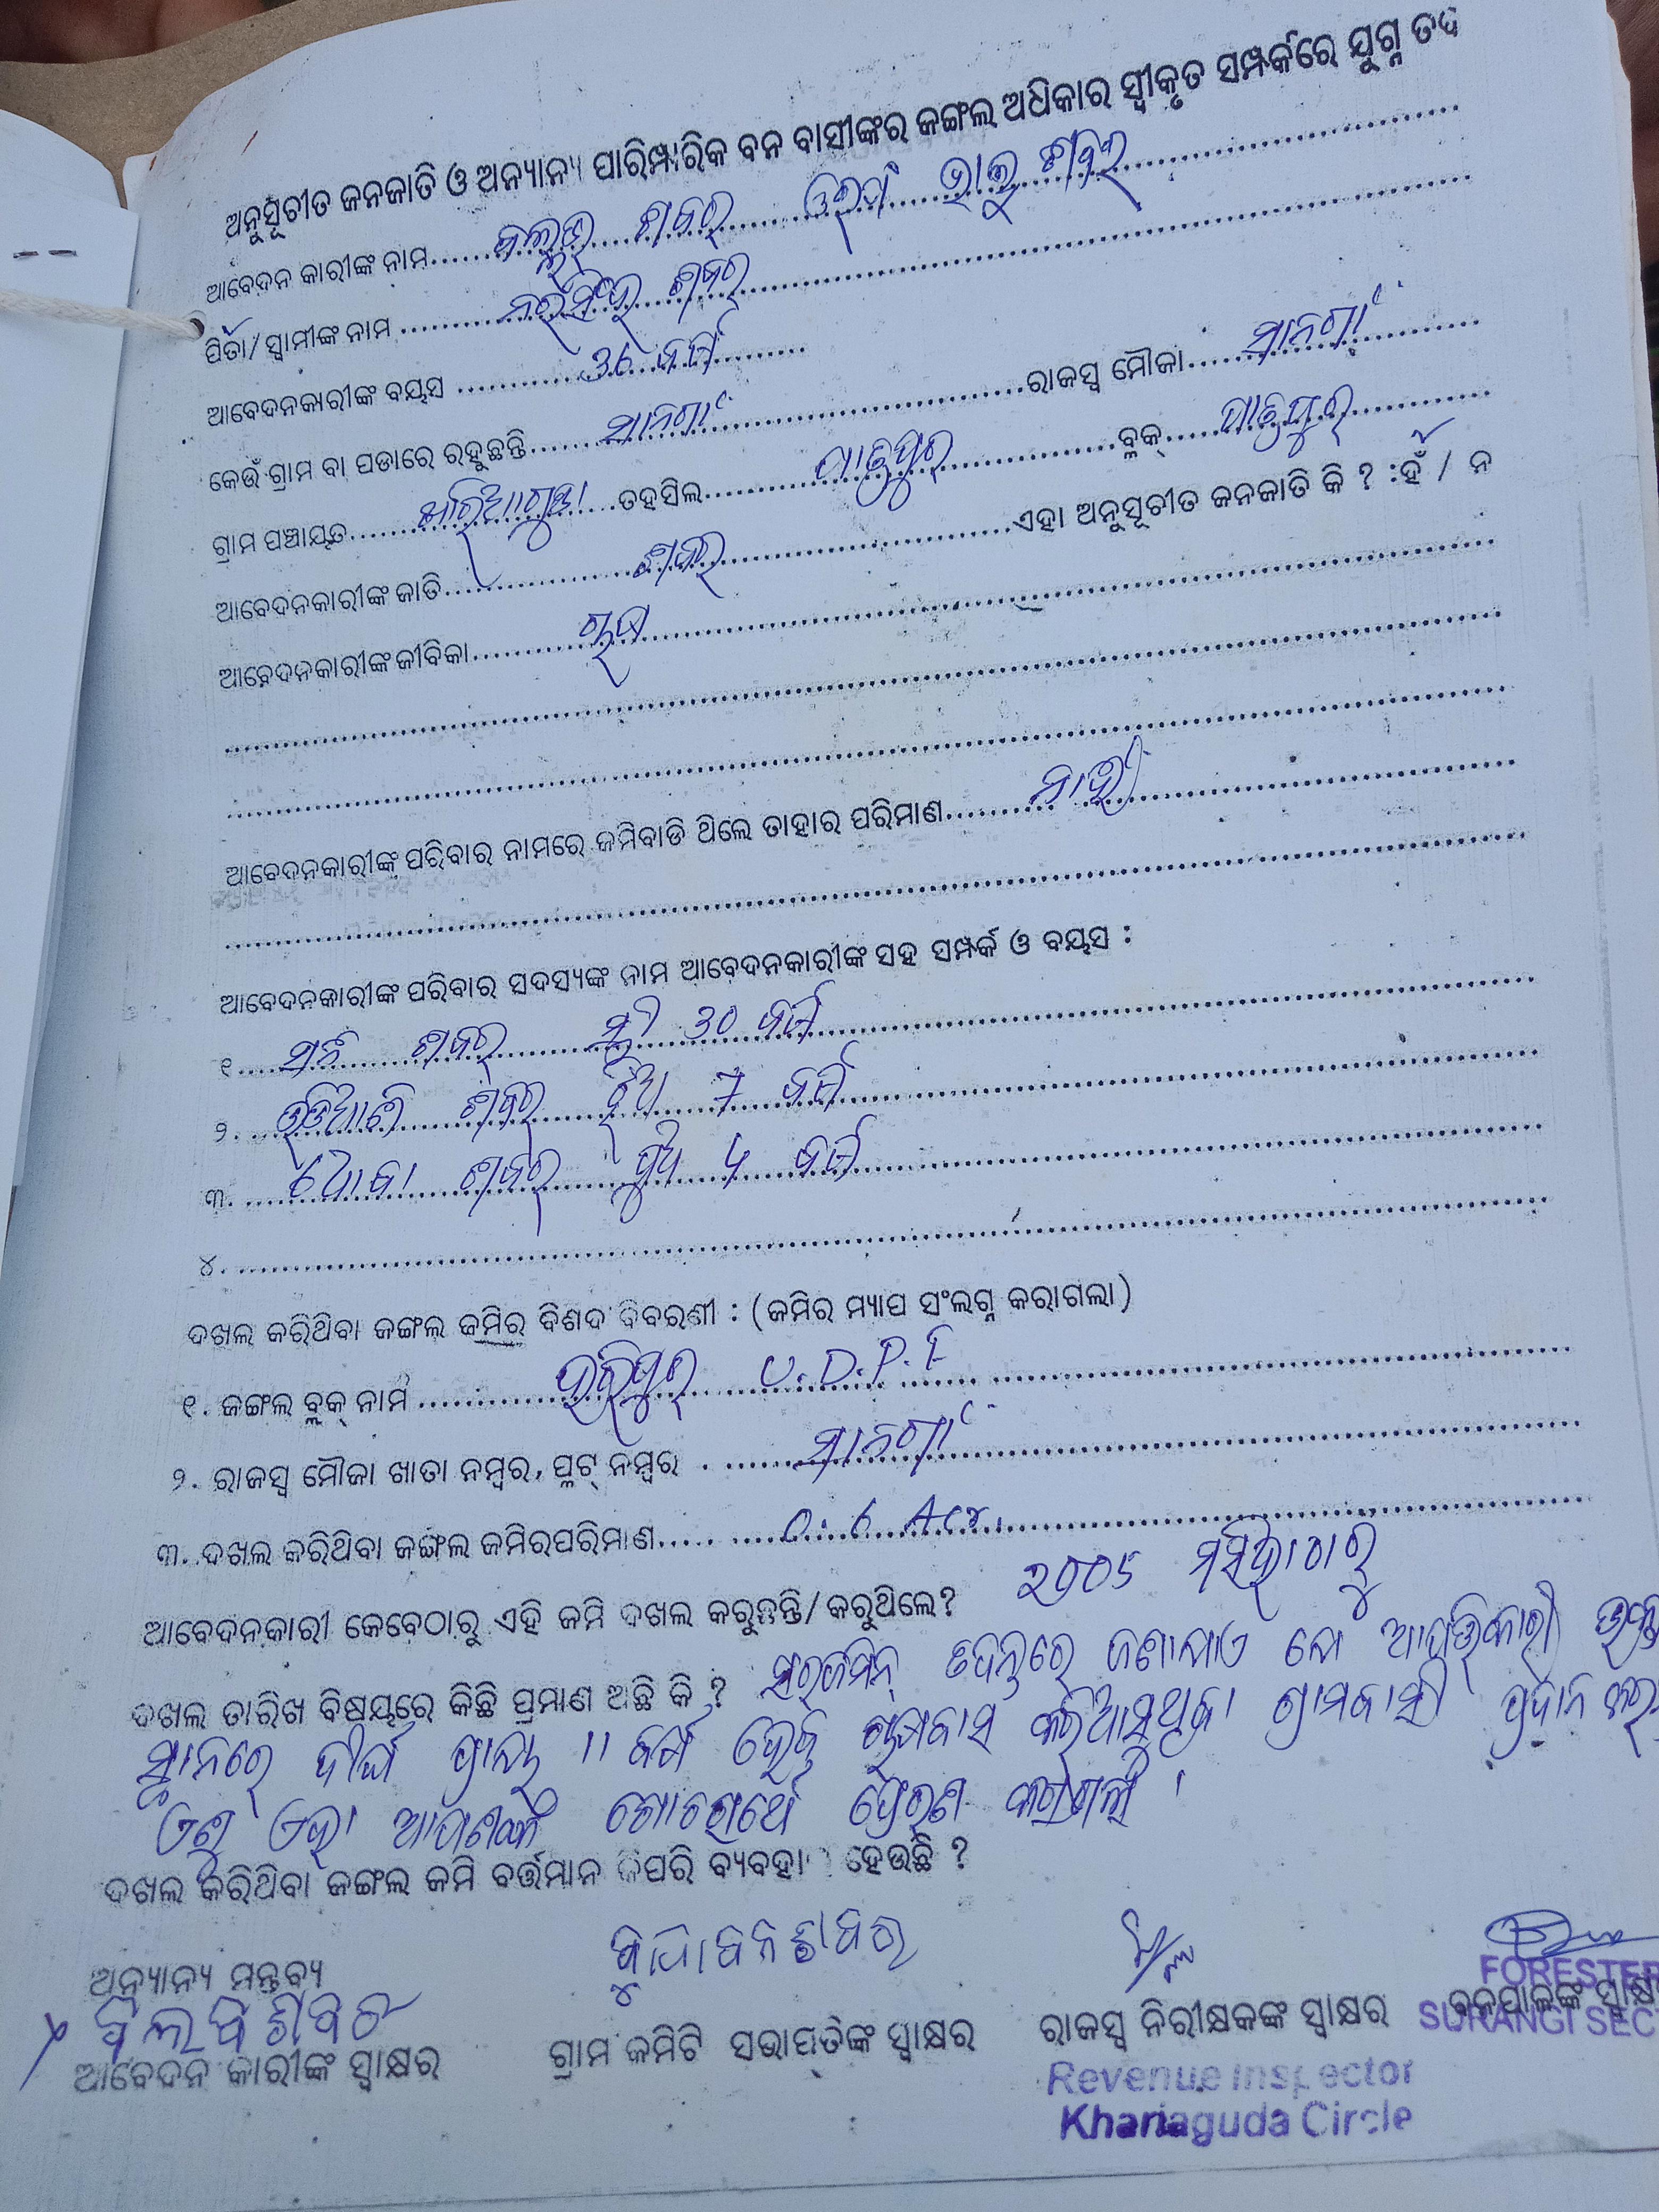 ଅନୁସୂଚୀତ ଜନଜାତି ଓ ଅନ୍ୟାନ୍ୟ ପାରିମ୍ପାରିକ ବନ ବାସୀଙ୍କର ଜଙ୍ଗଲ ଅଧିକାର ସ୍ୱୀକୃତ ସମ୍ପର୍କରେ ଯୁଗ୍ନ
ଆବେଦନ କାରୀଙ୍କ ନାମ ଶବର ଓରଫ ଭାଲୁ ଶବର
ପିତା/ସ୍ୱାମୀଙ୍କ ନାମ ନରସିଂହ ଶବର
ଆବେଦନକାରୀଙ୍କ ବୟସ ବର୍ଷ
କେଉଁ ଗ୍ରାମ ବା ପଡାରେ ରହୁଛନ୍ତି ସାନଗାଁ ରାଜସ୍ୱ ମୌଜା ସାନଗାଁ
ଗ୍ରାମ ପଞ୍ଚାୟତ ଖାରିଆଗୁଡା ତହସିଲ ପାତ୍ରପୁର ବ୍ଳକ୍ ପାତ୍ରପୁର
ଆବେଦନକାରୀଙ୍କ ଜାତି ଶବର ଏହା ଅନୁସୂଚୀତ ଜନଜାତି କି ? :ହଁ / ନ
ଆବେଦନକାରୀଙ୍କ ଜୀବିକା ଚାଷ
ଆବେଦନକାରୀଙ୍କ ପରିବାର ନାମରେ ଜମିବାଡି ଥିଲେ ତାହାର ପରିମାଣ ନାହିଁ
ଆବେଦନକାରୀଙ୍କ ପରିବାର ସଦସ୍ୟଙ୍କ ନାମ ଆବେଦନକାରୀଙ୍କ ସହ ସମ୍ପର୍କ ଓ ବୟସ :
୧. ଶବର ସ୍ତ୍ରୀ 30 ବର୍ଷ
୨. ଶବର ଝିଅ 7 ବର୍ଷ
୩. ଶବର ପୁଅ ବର୍ଷ
୪.
ଦଖଲ କରିଥିବା ଜଙ୍ଗଲ ଜମିର ବିଶଦ ବିବରଣୀ : (ଜମିର ମ୍ୟାପ ସଂଲଗ୍ନ କରାଗଲା)
୧. ଜଙ୍ଗଲ ବ୍ଲକ୍ ନାମ ହରିପୁର U.D.P.F
୨. ରାଜସ୍ୱ ମୌଜା ଖାତା ନମ୍ବର, ପ୍ଳଟ୍ ନମ୍ବର ସାନଗାଁ
୩. ଦଖଲ କରିଥିବା ଜଙ୍ଗଲ ଜମିରପରିମାଣ 0.6 Acr.
ଆବେଦନକାରୀ କେବେଠାରୁ ଏହି ଜମି ଦଖଲ କରୁଛନ୍ତି/କରୁଥିଲେ? 2005 ମସିହାଠାରୁ
ଦଖଲ ତାରିଖ ବିଷୟରେ କିଛି ପ୍ରମାଣ ଅଛି କି ? ସରଜମିନ୍ ତଦନ୍ତରେ ଜଣାଯାଏ ଯେ
ସ୍ଥାନରେ ଦୀର୍ଘ ବର୍ଷ ହେବ ଚାଷବାସ କରିଆସୁଥିବା ଗ୍ରାମବାସୀ ପ୍ରଦାନ
ତେଣୁ ଏହା ଆପଣଙ୍କ ଗୋଚରାର୍ଥେ ପ୍ରେରଣ କରାଗଲା ।
ଦଖଲ କରିଥିବା ଜଙ୍ଗଲ ଜମି ବର୍ତ୍ତମାନ କିପରି ହେଉଛି ?
ଅନ୍ୟାନ୍ୟ ମନ୍ତବ୍ୟ
ଆବେଦନ କାରୀଙ୍କ ସ୍ୱାକ୍ଷର ଗ୍ରାମ କମିଟି ସଭାପତିଙ୍କ ସ୍ୱାକ୍ଷର ରାଜସ୍ୱ ନିରୀକ୍ଷକଙ୍କ ସ୍ୱାକ୍ଷର ବନପାଳଙ୍କ
FORESTER
SURANGI SEC
Revenue Inspector
Khariaguda Circle